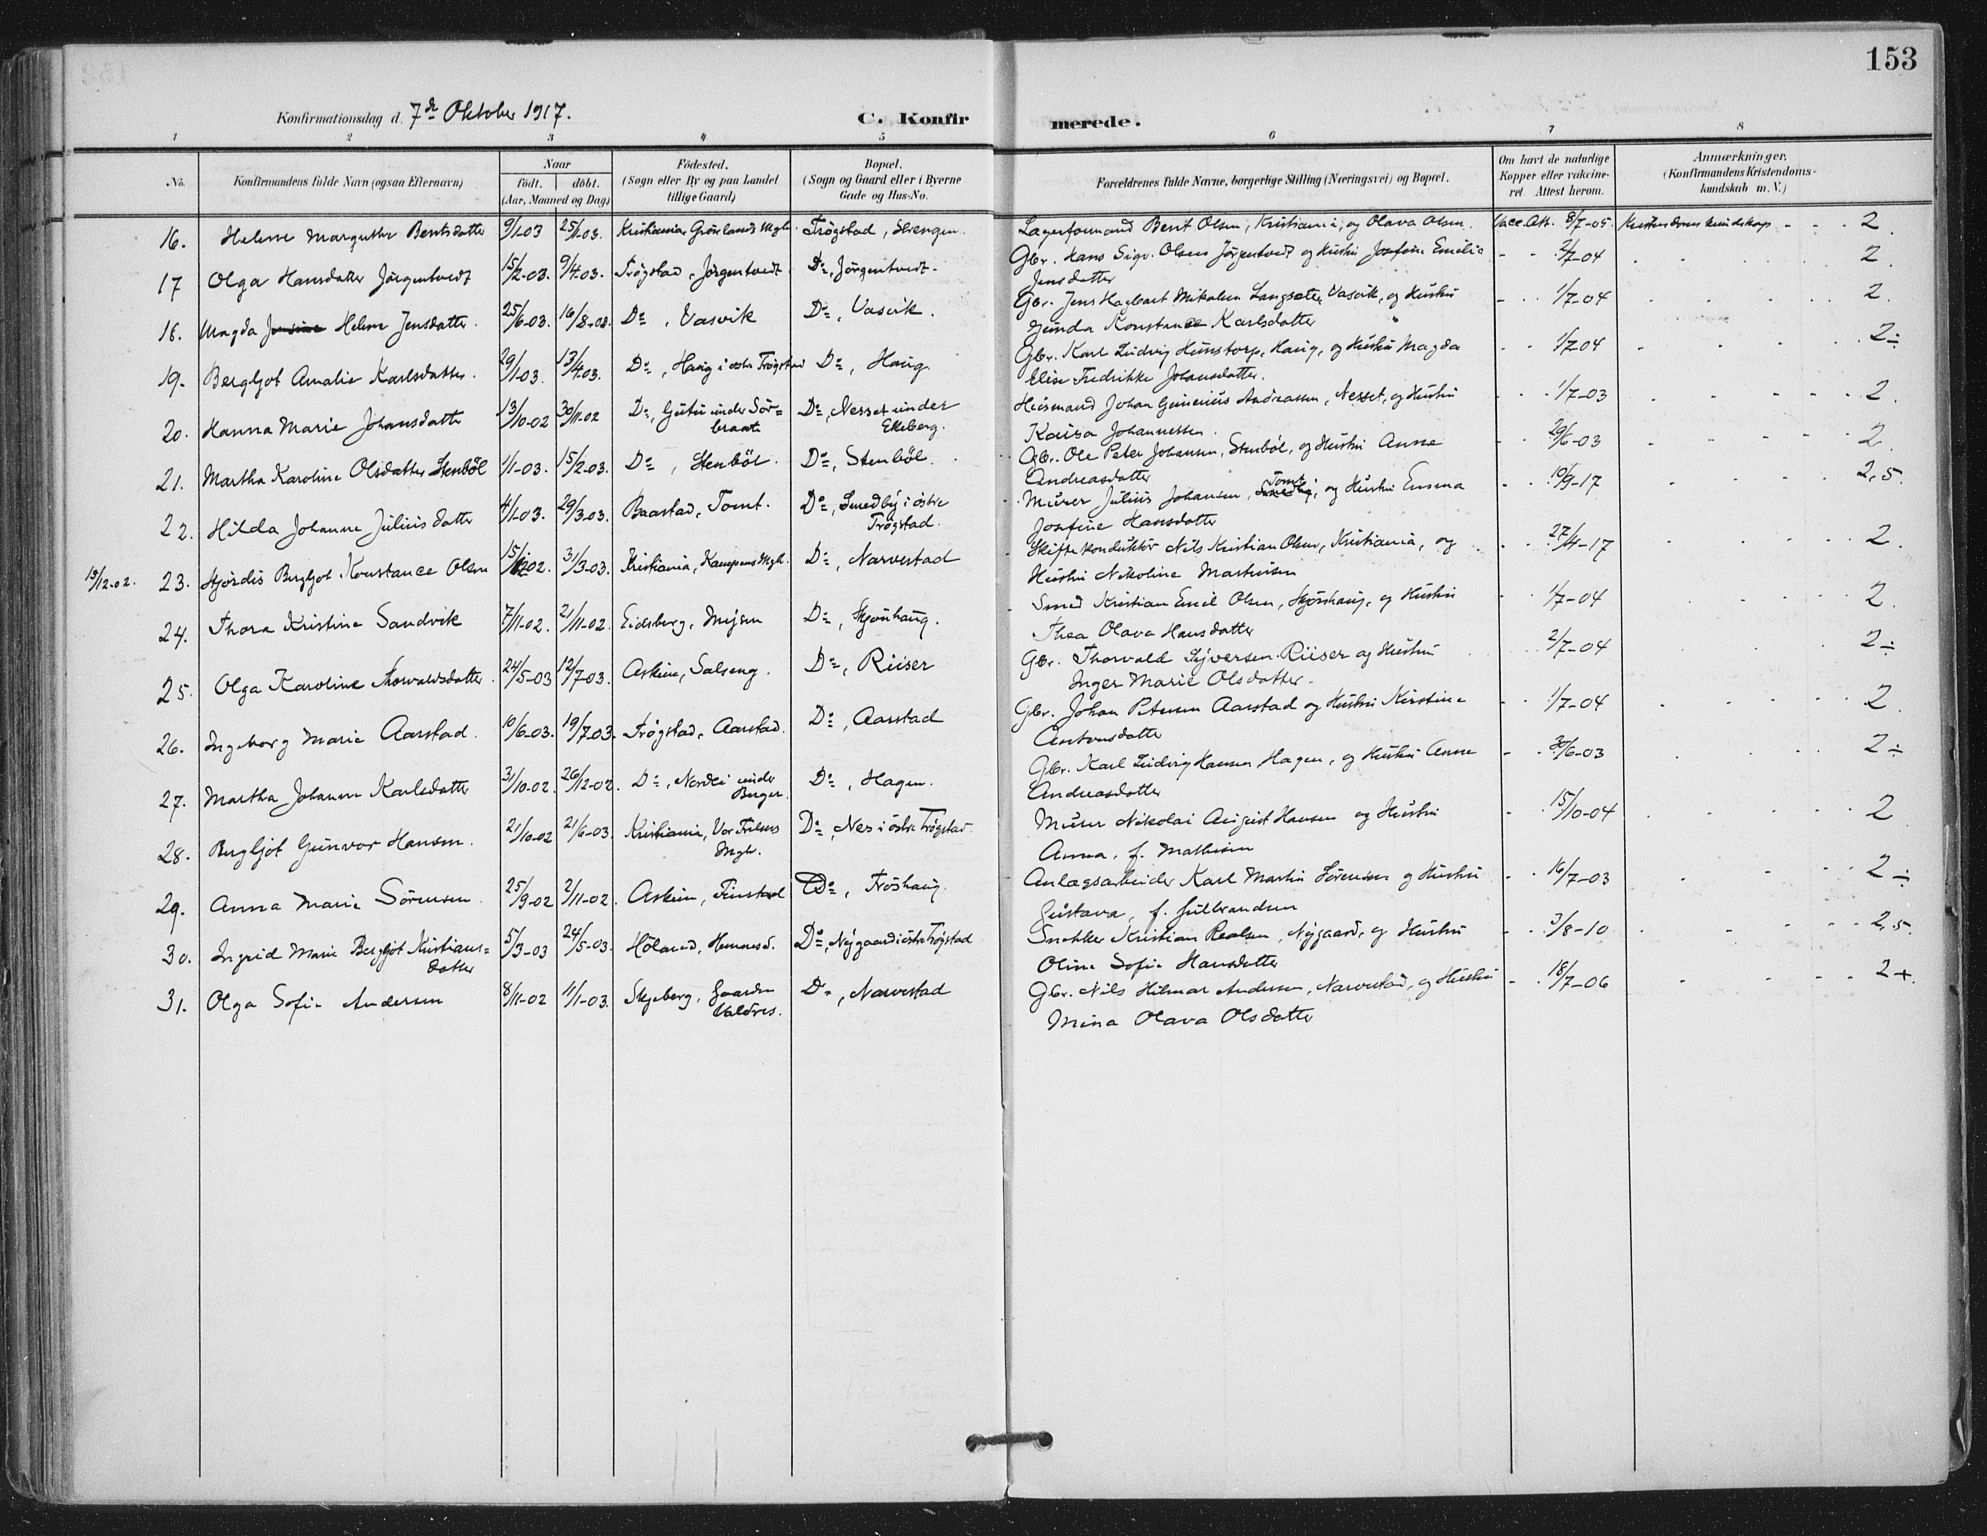 153
Konfirmationsdag d. 7de Oktober 1917.
C. Konfir merede.
1 2 3 4 5 6 7 8
No. Konfirmandens fulde Navn (ogsaa Efternavn) Naar födt. döbt. (Aar, Maaned og Dag) Födested. (Sogn eller By og paa Landet tillige Gaard) Bopæl. (Sogn og Gaard eller i Byerne Gade og Hus-No. Forældrenes fulde Navne, borgerlige Stilling (Næringsvei) og Bopæl. Om havt de naturlige Kopper eller vakcineret Attest herom. Anmærkninger. (Konfirmandens Kristendomskundskab m. V.)
16. Helene Margrethe Berntsdatter 9/1-03 25/1-03. Kristiania Grønlands Mgh. Trøgstad, Lagerformand Bernt Olsen, Kristiania, og Olava Olsen. Vacc.Att. 8/7-05. Kristendomskundskap 2.
17 Olga Hansdatter Jørgentvedt 15/2-03. 9/4-03. Trøgstad, Jørgentvedt. Do, Jørgentvedt. Gbr. Hans Sigv. Olsen Jørgentvedt og Hustru Josefine Emilie 2/7-04 2.
Jensdatter
18. Magda Helene Jensdatter. 25/6-03. 16/8-03. Do, Vasvik Do, Vasvik. Gbr. Jens Hagbart Mikalsen Langsæter, Vasvik, og Hustru 1/7-04 2.
Gunda Konstance Karlsdatter
19. Bergljot Amalie Karlsdatter. 29/1-03. 13/4-03. Do, Haug i østre Trøgstad Do, Haug. Gbr. Karl Ludvig Hunstorp, Haug, og Hustru Magda 1/7-04 2÷
Elise Fredrikke Johansdatter.
20. Hanna Marie Johansdatter 13/10-02 30/11-02 Do, under Sör= Do, Nesset under Husmand Johan Andreassen, Nesset, og Hustru 1/7-03 2.
braate Ekeberg. Kaisa Johannessen.
21. Martha Karoline Olsdatter Stenböl 1/1-03. 15/2-03. Do, Stenböl. Do, Stenböl. Gbr. Ole Peter Johansen, Stenböl, og Hustru Anne 29/6-03 2.
Andreasdatter
22. Hilda Johanne Juliusdatter 4/1-03. 29/3-03. Baastad, Tomt. Do, Smedby i östre Murer Julius Johansen, Tomt, og Hustru Emma 10/9-17 2,5.
Trögstad. Josefine Hansdatter
15/12-02. 23. Hjördis Bergljot Konstance Olsen 15/12 02. 31/3-03. Kristiania, Kampens Mgh. Do, Narvestad Skiftekonduktör Nils Kristian Olsen, Kristiania, og 27/4-17 2.
Hustru Nikoline Martinsen
24. Thora Kristine Sandvik 7/11-02. 21/11-02. Eidsberg, Mysen Do, Skjønhaug. Smed Kristian Emil Olsen, Skjønhaug, og Hustru 1/7-04 2.
Thea Olava Hansdatter
25. Olga Karoline Thorvaldsdatter. 24/5-03 12/7-03. Askim, Solseng. Do, Riiser Gbr. Thorvald Syversen Riiser og Hustru 2/7-04 2÷
Inger Marie Olsdatter.
26. Ingeborg Marie Aarstad. 10/6-03. 19/7-03. Trögstad, Aarstad. Do, Aarstad Gbr. Johan Petersen Aarstad og Hustru Kirstine 1/7-04 2.
Antonsdatter
27. Martha Johanne Karlsdatter 31/10-02. 26/12-02. Do, under Do, Hagen. Gbr. Karl Ludvig Hansen, Hagen, og Hustru Anne 30/6-03 2÷
Berger. Andreasdatter
28. Bergljot Gunvor Hansen. 21/10-02 21/6-03. Kristiania, Vor Frelsers Do, Nes i östre Trögstad. Murer Nikolai August Hansen og Hustru 15/10-04 2
Mgh. Anna, f. Mathisen
29. Anna Marie Sörensen. 25/9-02 2/11-02. Askim, Finstad Do, Froshaug. Anlægsarbeider Karl Martin Sörensen og Hustru 16/7-03 2÷
Gustava, f. Gulbrandsen
30. Ingrid Marie Bergljot Kristians= 5/3-03 24/5-03. Höland, Hemnes s. Do, Nygaard i östre Trögstad Snekker Kristian Nygaard, og Hustru 3/8-10 2,5.
datter Oline Sofie Hansdatter
31. Olga Sofie Andersen 8/11-02 1/1-03. Skjeberg, Gaarden Do, Narvestad Gbr. Nils Hilmar Andersen, Narvestad, og Hustru 18/7-06 2+.
Valdres. Mina Olava Olsdatter